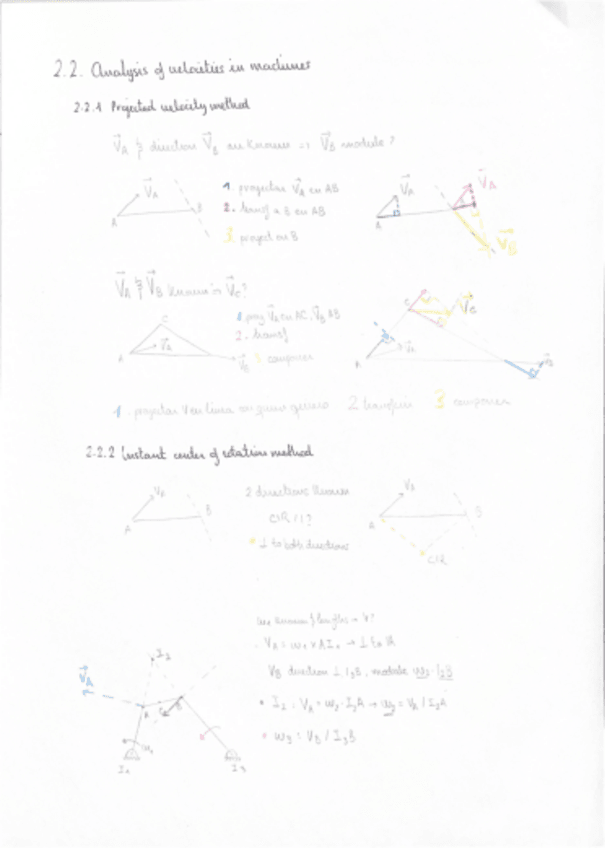 2.2. Analysis of velocities in machines
2.2.1 Projected velocity method
V⃗A & direction V⃗B are known ⇒ V⃗B module?
V⃗A
A
B
1. projection V⃗A on AB
2. transf a B on AB
3. project on B
V⃗A
A
V⃗A
V⃗B
V⃗A & V⃗B known ⇒ V⃗C?
C
A
V⃗A
V⃗B
1. proy V⃗A on AC, V⃗B AB
2. transf
3. componer
C
A
1. proyectar V en linea 2 transferir 3 componer
2.2.2 Instant center of rotation method
VA
A
B
2 directions known
CIR / I?
⊥ to both directions
VA
A
B
CIR
VB direction ⊥ I3B, module ω3·I3B
I2: VA = ω2·I2A → ω2 = VA / I2A
ω3 = VB / I3B
V⃗A
I2
A
ω1
I1
I3